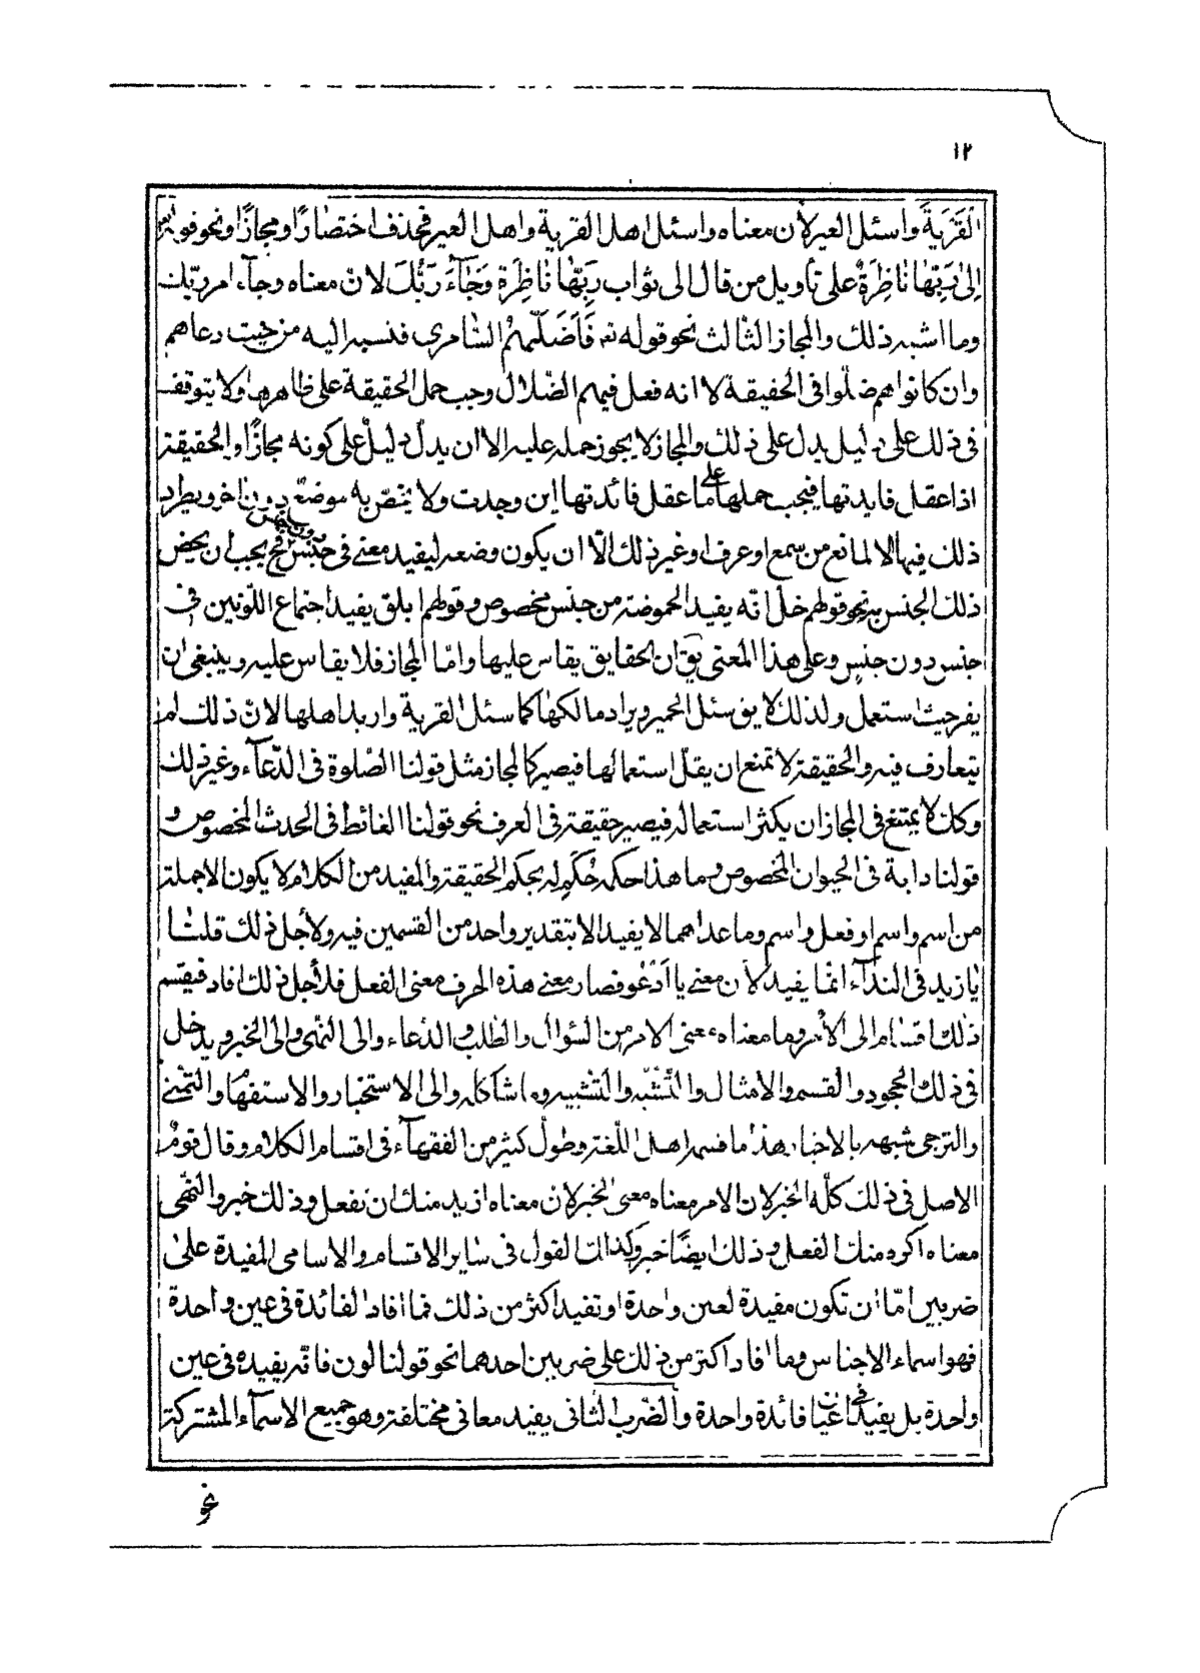 ١٢
القَرْيَةَ واسئل العير لأن معناه واسئل اهل القرية واهل العير فحذف اختصارًا ومجازًا ونحو قوله تعم
إِلىٰ رَبِّهٰا نٰاظِرَةٌ على تأويل من قال الى ثواب رَبِّهٰا نٰاظِرَة وَجٰآءَ رَبُّكَ لانّ معناه وجآء امر ربّك
وما اشبه ذلك والمجاز الثالث نحو قوله تع فَاَضَلَّهُمُ السّٰامرى فنسبه اليه من حيث دعاهم
وان كانوا هم ضلّوا فى الحقيقة لا انه فعل فيهم الضّلال وجب حمل الحقيقة على ظاهرها ولا يتوقف
فى ذلك على دليل يدل على ذلك والمجاز لا يجوز حمله عليه الا ان يدلّ دليلٌ على كونه مجازًا والحقيقة
اذا عقل فايدتها فيجب حملها على ما عقل فائدتها اين وجدت ولا يختصّ به موضع دون اخر ويطرد
ذلك فيها الا لمانع من سمع او عرف او غير ذلك الّا ان يكون وضعه ليفيد معنى فى جنس دون جنس فح يجب ان يخصّ
ذلك الجنس به نحو قولهم خلّ انّه يفيد الحموضة من جنس مخصوص وقولهم ابلق يفيد اجتماع اللّونين فى
جنس دون جنس وعلى هذا المعنى يق ان الحقايق يقاس عليها وامّا المجاز فلا يقاس عليه وينبغى ان
يقر حيث استعمل ولذلك لا يق سئل الحمير ويراد مالكها كما سئل القرية واريد اهلها لانّ ذلك لم
يتعارف فيه والحقيقة لا تمنع ان يقلّ استعمالها فيصير كالمجاز مثل قولنا الصّلوة فى الدّعآء وغير ذلك
وكك لا يمتنع فى المجاز ان يكثر استعماله فيصير حقيقة فى العرف نحو قولنا الغائط فى الحدث المخصوص و
قولنا دابة فى الحيوان المخصوص وما هذا حكمه حُكِم له بحكم الحقيقة والمفيد من الكلام لا يكون الا جملة
من اسم واسم او فعل واسم وما عداهما لا يفيد الا بتقدير واحد من القسمين فيه ولاجل ذلك قلنٰا
يٰا زيد فى الندآء انّما يفيد لأن معنى يا اَدْعُو فصار معنى هذه الحرف معنى الفعل فلأجل ذلك افاد فيقسم
ذلك اقسام الى الأمر وما معناه معنى الامر من السّؤال والطّلب والدّعاء والى النّهى والى الخبر ويدخل
فى ذلك الجحود والقسم والامثال والتّشبّه والتّشبيه وما شاكله والى الاستخبار والاستفهام والتمنّى
والترجى شبهه بالاخبار هذا ما قسمه اهل اللّغة وطول كثير من الفقهآء فى اقسام الكلام وقال قومٌ
الاصل فى ذلك كلّه الخبر لان الامر معناه معنى الخبر لان معناه اُريد منك ان تفعل وذلك خبر والنّهى
معناه اكره منك الفعل وذلك ايضًا خبر وكذالك القول فى سٰاير الاقسام والاسامى المفيدة علىٰ
ضربين امّا ان تكون مفيدة لعين واحدة او تفيد اكثر من ذلك فما افاد الفائدة فى عين واحدة
فهو اسماء الاجناس وما افاد اكثر من ذلك على ضربين احدهما نحو قولنا لون فانّه يفيده فى عين
واحدة بل يفيد فى اعيان فائدة واحدة والضّرب الثانى يفيد معانى مختلفة وهو جميع الاسمآء المشتركة
نحو